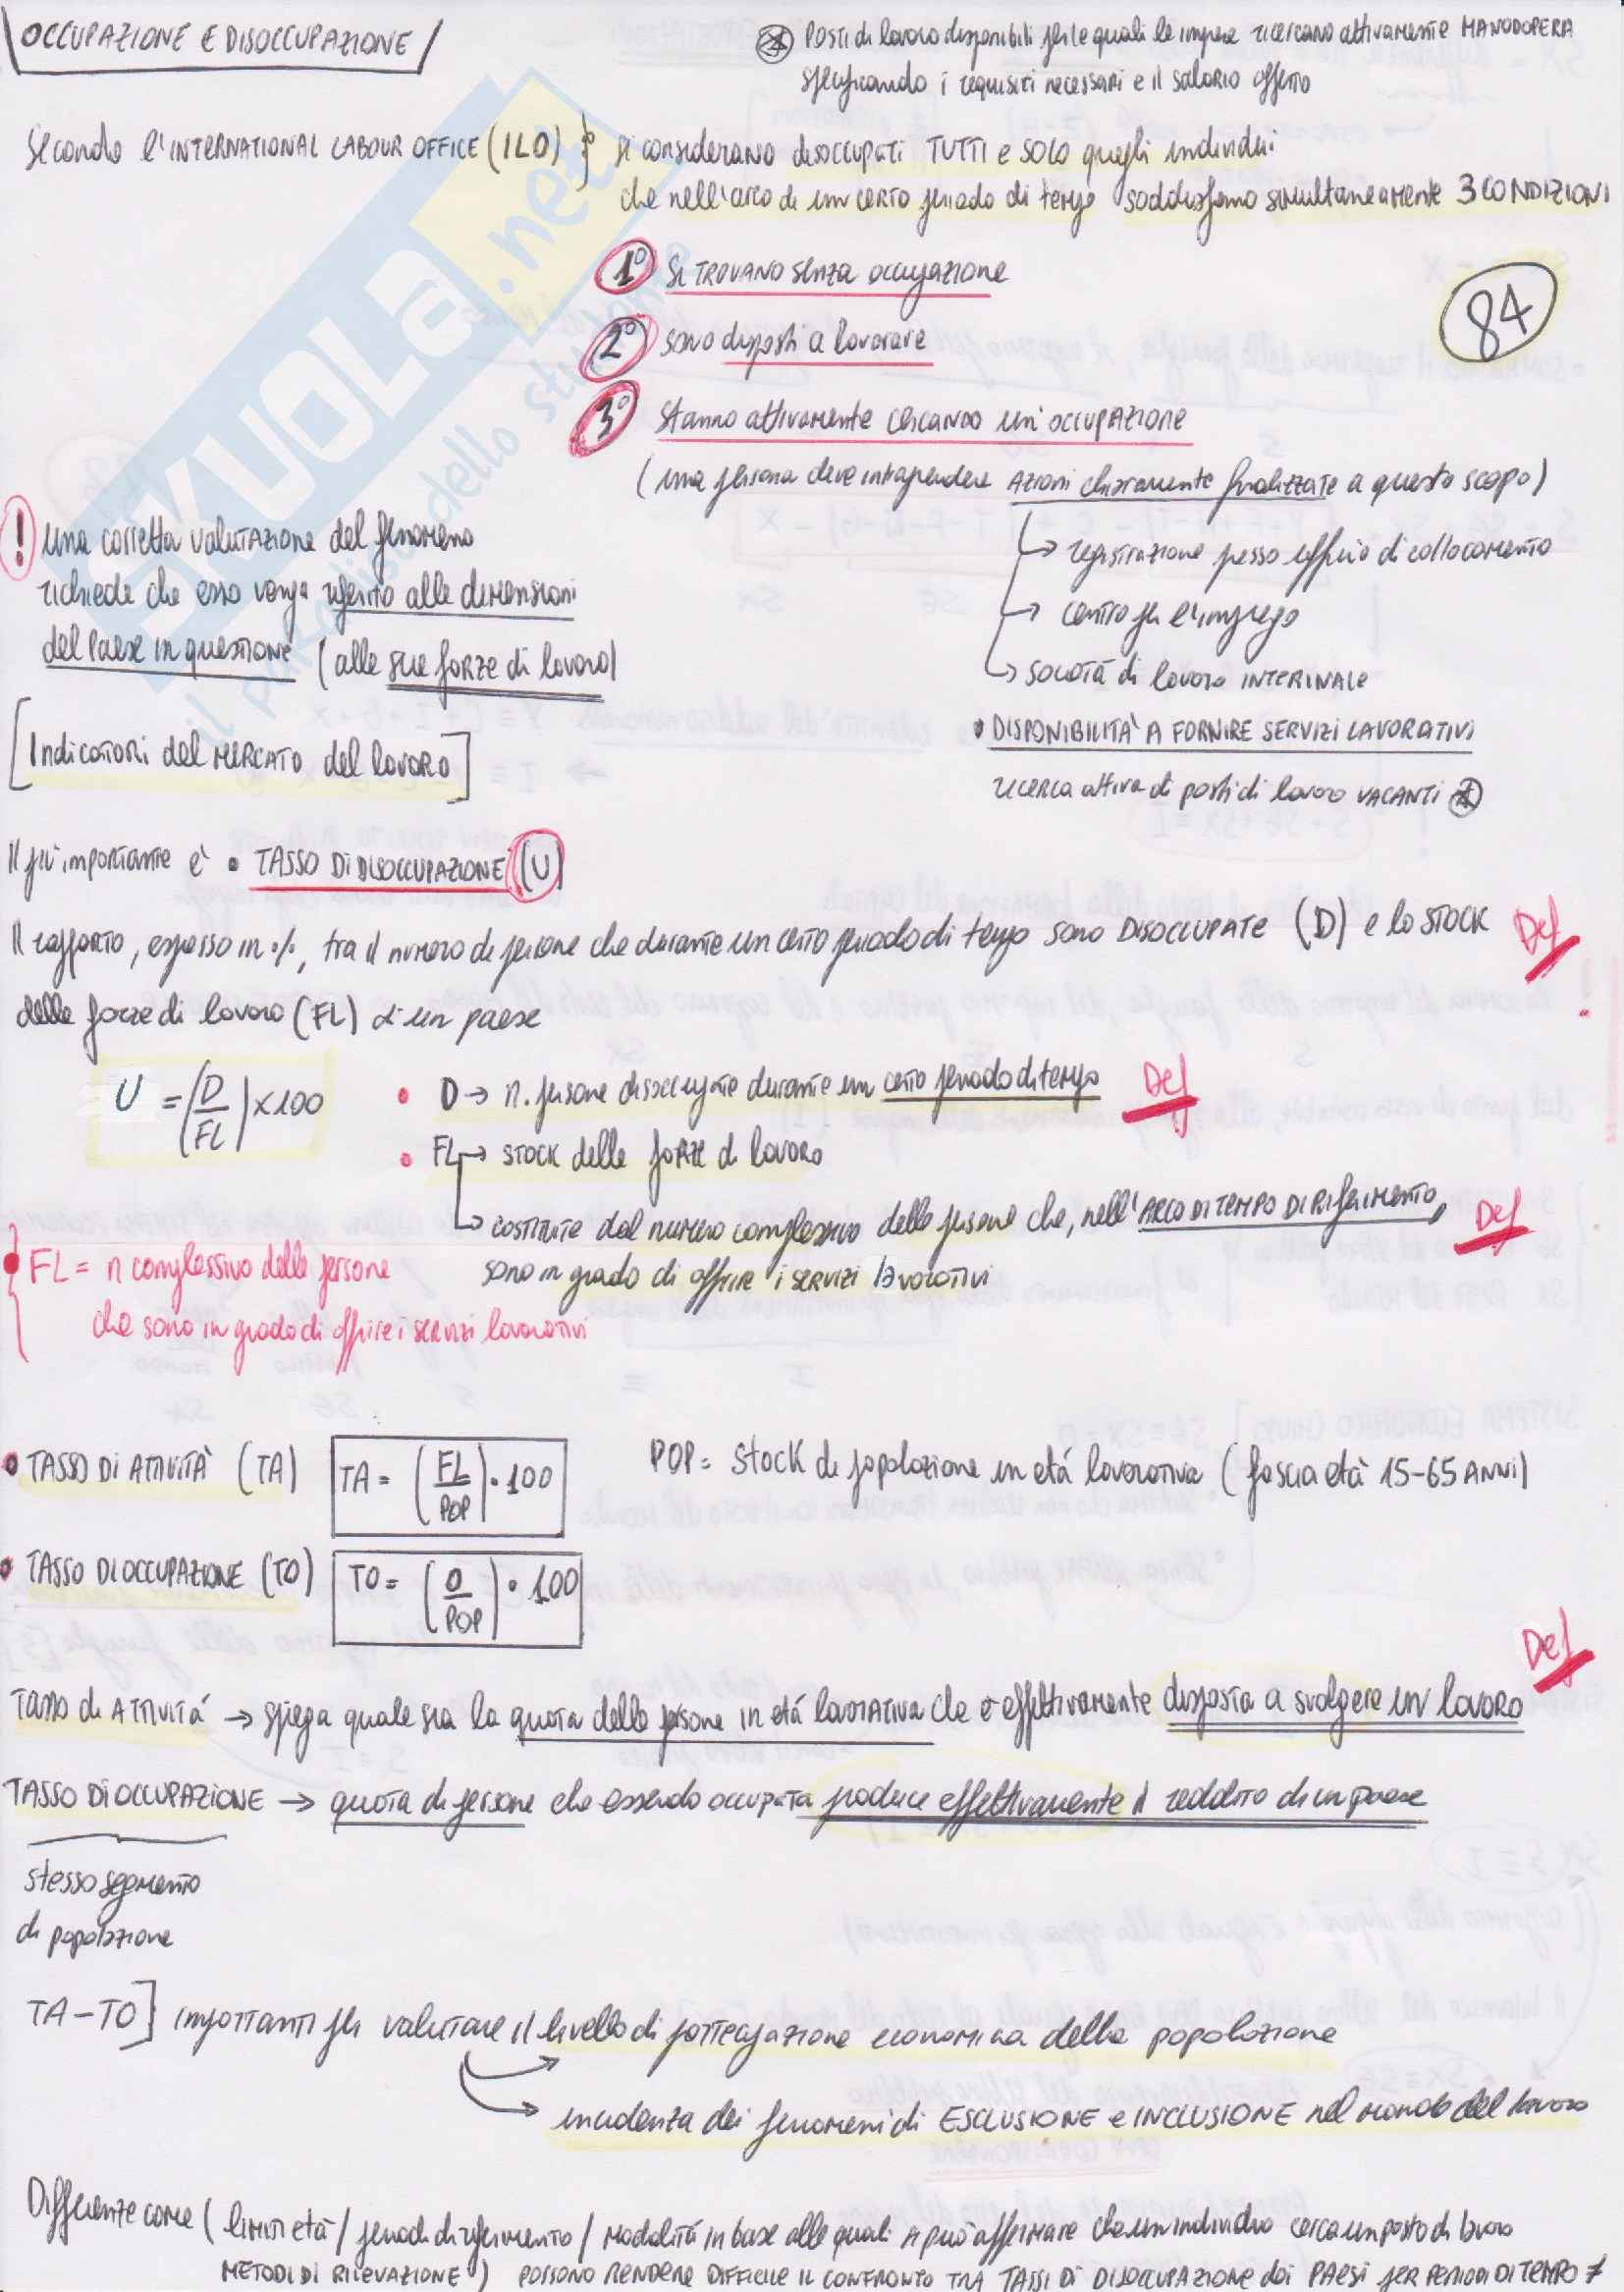 OCCUPAZIONE E DISOCCUPAZIONE
* Posti di lavoro disponibili per le quali le imprese ricercano attivamente MANODOPERA
specificando i requisiti necessari e il salario offerto
Secondo l'INTERNATIONAL LABOUR OFFICE (ILO) : si considerano disoccupati TUTTI e SOLO quegli individui
che nell'arco di un certo periodo di tempo soddisfano simultaneamente 3 CONDIZIONI
1° Si TROVANO senza occupazione
84
2° sono disposti a lavorare
3° Stanno attivamente cercando un'occupazione
(una persona deve intraprendere AZIONI chiaramente finalizzate a questo scopo)
→ registrazione presso ufficio di collocamento
→ centro per l'impiego
→ società di lavoro INTERINALE
• DISPONIBILITÀ A FORNIRE SERVIZI LAVORATIVI
ricerca attiva di posti di lavoro VACANTI *
! Una corretta valutazione del fenomeno
richiede che esso venga riferito alle dimensioni
del Paese in questione (alle sue forze di lavoro)
[Indicatori del MERCATO del lavoro]
Il più importante è • TASSO Di DISOCCUPAZIONE (U)
Il rapporto, espresso in %, tra il numero di persone che durante un certo periodo di tempo sono DISOCCUPATE (D) e lo STOCK Def
delle forze di lavoro (FL) di un paese
U = (D/FL) x 100
• D → n. persone disoccupate durante un certo periodo di tempo Def
• FL → STOCK delle forze di lavoro
→ costituite dal numero complessivo delle persone che, nell'ARCO DI TEMPO DI Riferimento, Def
sono in grado di offrire i servizi lavorativi
• FL = n complessivo delle persone
che sono in grado di offrire i servizi lavorativi
• TASSO Di ATTIVITÀ (TA) TA = (FL/POP) • 100 POP = Stock di popolazione in età lavorativa (fascia età 15-65 ANNI)
• TASSO DI OCCUPAZIONE (TO) TO = (O/POP) • 100
Tasso di ATTIVITÀ → spiega quale sia la quota delle persone in età lavorativa che è effettivamente disposta a svolgere un lavoro Def
TASSO Di OCCUPAZIONE → quota di persone che essendo occupata produce effettivamente il reddito di un paese
stesso segmento
di popolazione
TA-TO] importanti per valutare il livello di partecipazione economica della popolazione
→ incidenza dei fenomeni di ESCLUSIONE e INCLUSIONE nel mondo del lavoro
Differenze come (limiti età / periodi di riferimento / modalità in base alle quali si può affermare che un individuo cerca un posto di lavoro
METODI DI RILEVAZIONE) POSSONO RENDERE DIFFICILE IL CONFRONTO TRA TASSI DI DISOCCUPAZIONE dei PAESI PER PERIODI DI TEMPO ≠
SKUOLA.net
il paradiso dello studente